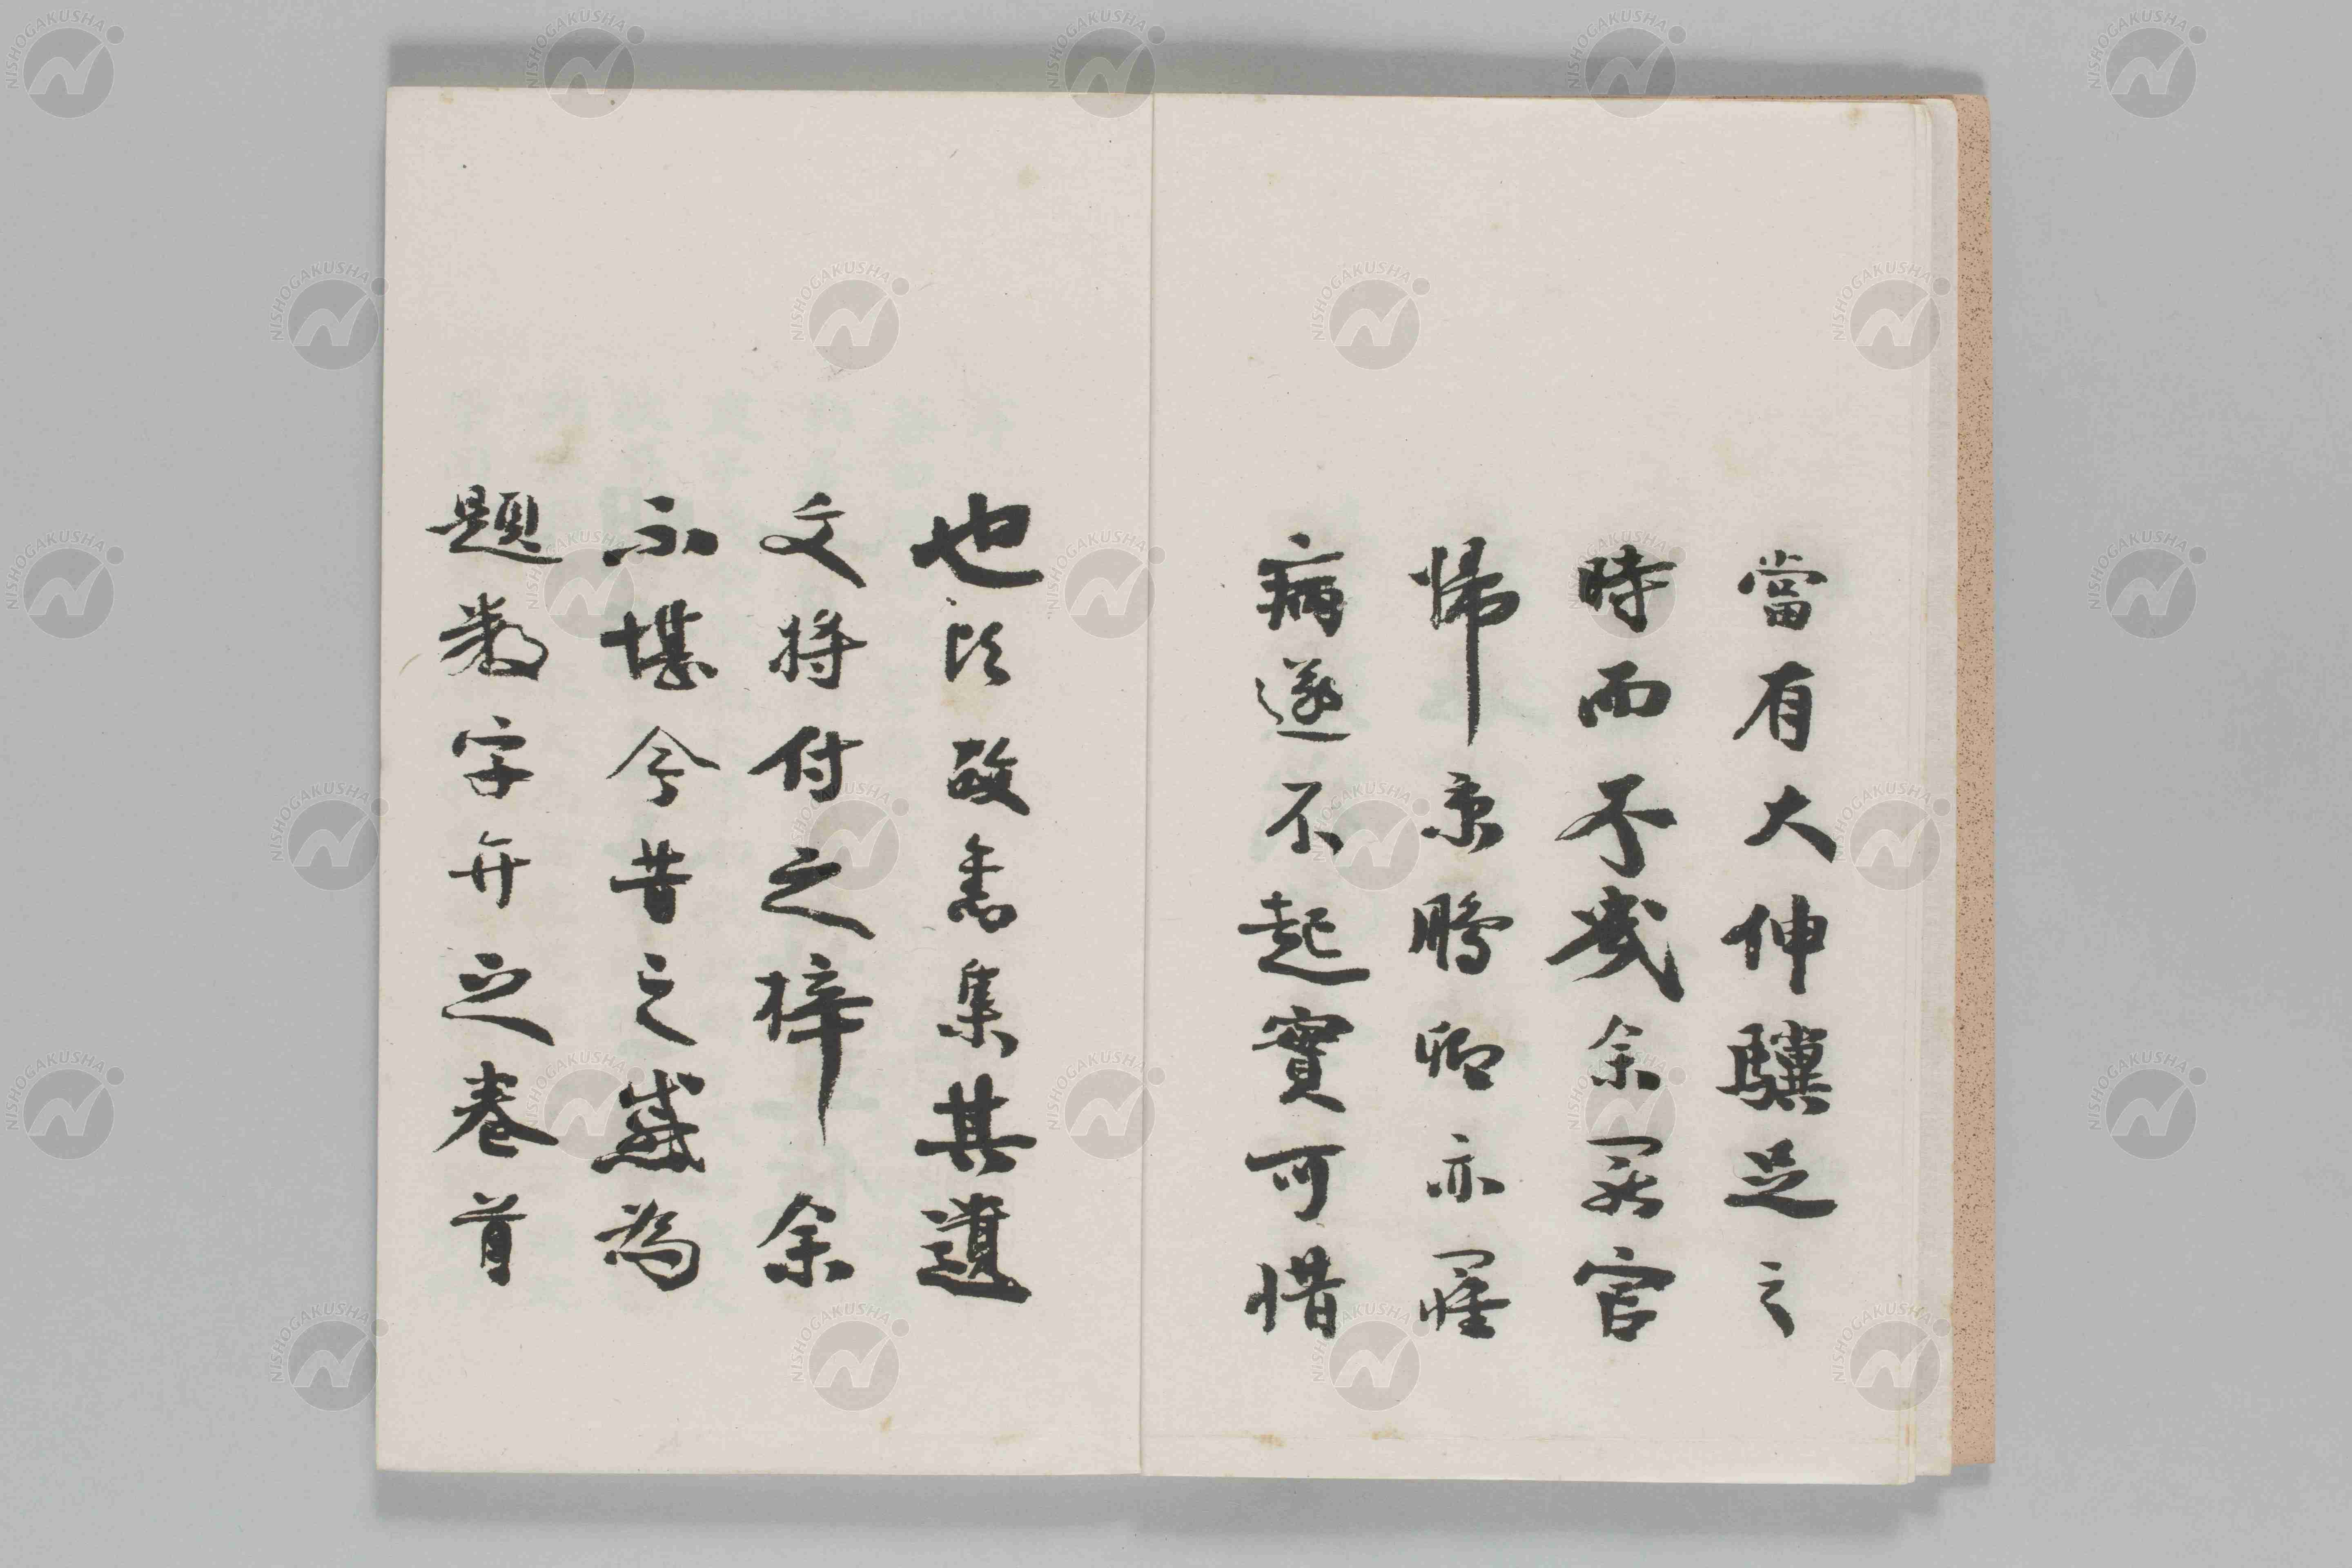 當有大伸驥足之
時而不幾余罷官
帰京鵬卿亦罹
病遂不起實可惜
也頃故舊集其遺
文將付之梓余
不堪今昔之感為
題數字弁之巻首
NISHOGAKUSHA